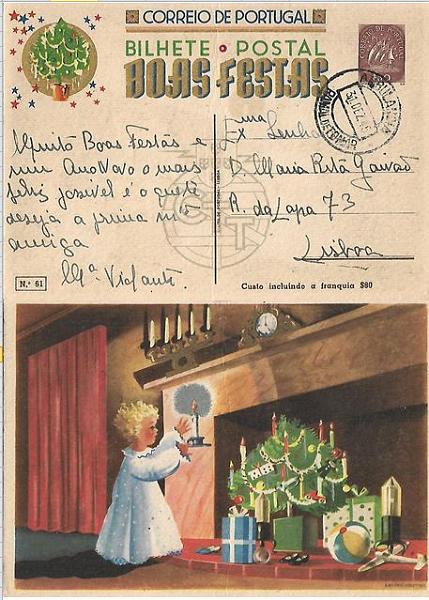 CORREIO DE PORTUGAL
BILHETE POSTAL
BOAS FESTAS
CORREIO DE PORTUGAL
AMBULANCIA
Muito Boas Festas e
um Ano Novo o mais
feliz possivel é o que te
deseja a prima mto
amiga
Mª Violante.
Exma Senhora
D. Maria Rita Gavazo
R. da Lapa 73
Lisboa
N.º 61
Custo incluindo a franquia $80